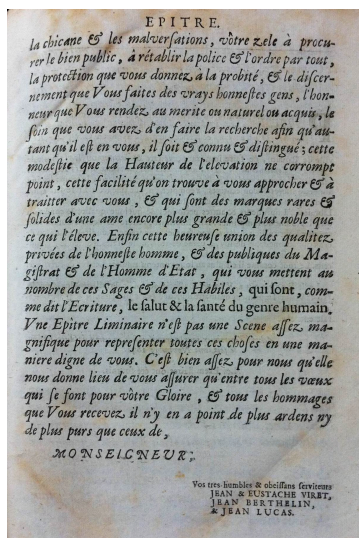 EPITRE.
la chicane & les malversations, vôtre zele à procu-
rer le bien public, à rétablir la police & l'ordre par tout,
la protection que vous donnez à la probité, & le discer-
nement que Vous faites des vrays honnestes gens, l'hon-
neur que Vous rendez au merite ou naturel ou acquis, le
soin que vous avez d'en faire la recherche afin qu'au-
tant qu'il est en vous, il soit & connu & distingué; cette
modestie que la Hauteur de l'elevation ne corrompt
point, cette facilité qu'on trouve à vous approcher & à
traitter avec vous, & qui sont des marques rares &
solides d'une ame encore plus grande & plus noble que
ce qui l'éleve. Enfin cette heureuse union des qualitez
privées de l'honneste homme, & des publiques du Ma-
gistrat & de l'Homme d'Etat, qui vous mettent au
nombre de ces Sages & de ces Habiles, qui sont, com-
me dit l'Ecriture, le salut & la santé du genre humain.
Vne Epitre Liminaire n'est pas une Scene assez ma-
gnifique pour representer toutes ces choses en une ma-
niere digne de vous. C'est bien assez pour nous qu'elle
nous donne lieu de vous assurer qu'entre tous les vœux
qui se font pour vôtre Gloire, & tous les hommages
que Vous recevez il n'y en a point de plus ardens ny
de plus purs que ceux de,
MONSEIGNEUR,
Vos tres-humbles & obeissans serviteurs
JEAN & EUSTACHE VIRET,
JEAN BERTHELIN,
& JEAN LUCAS.